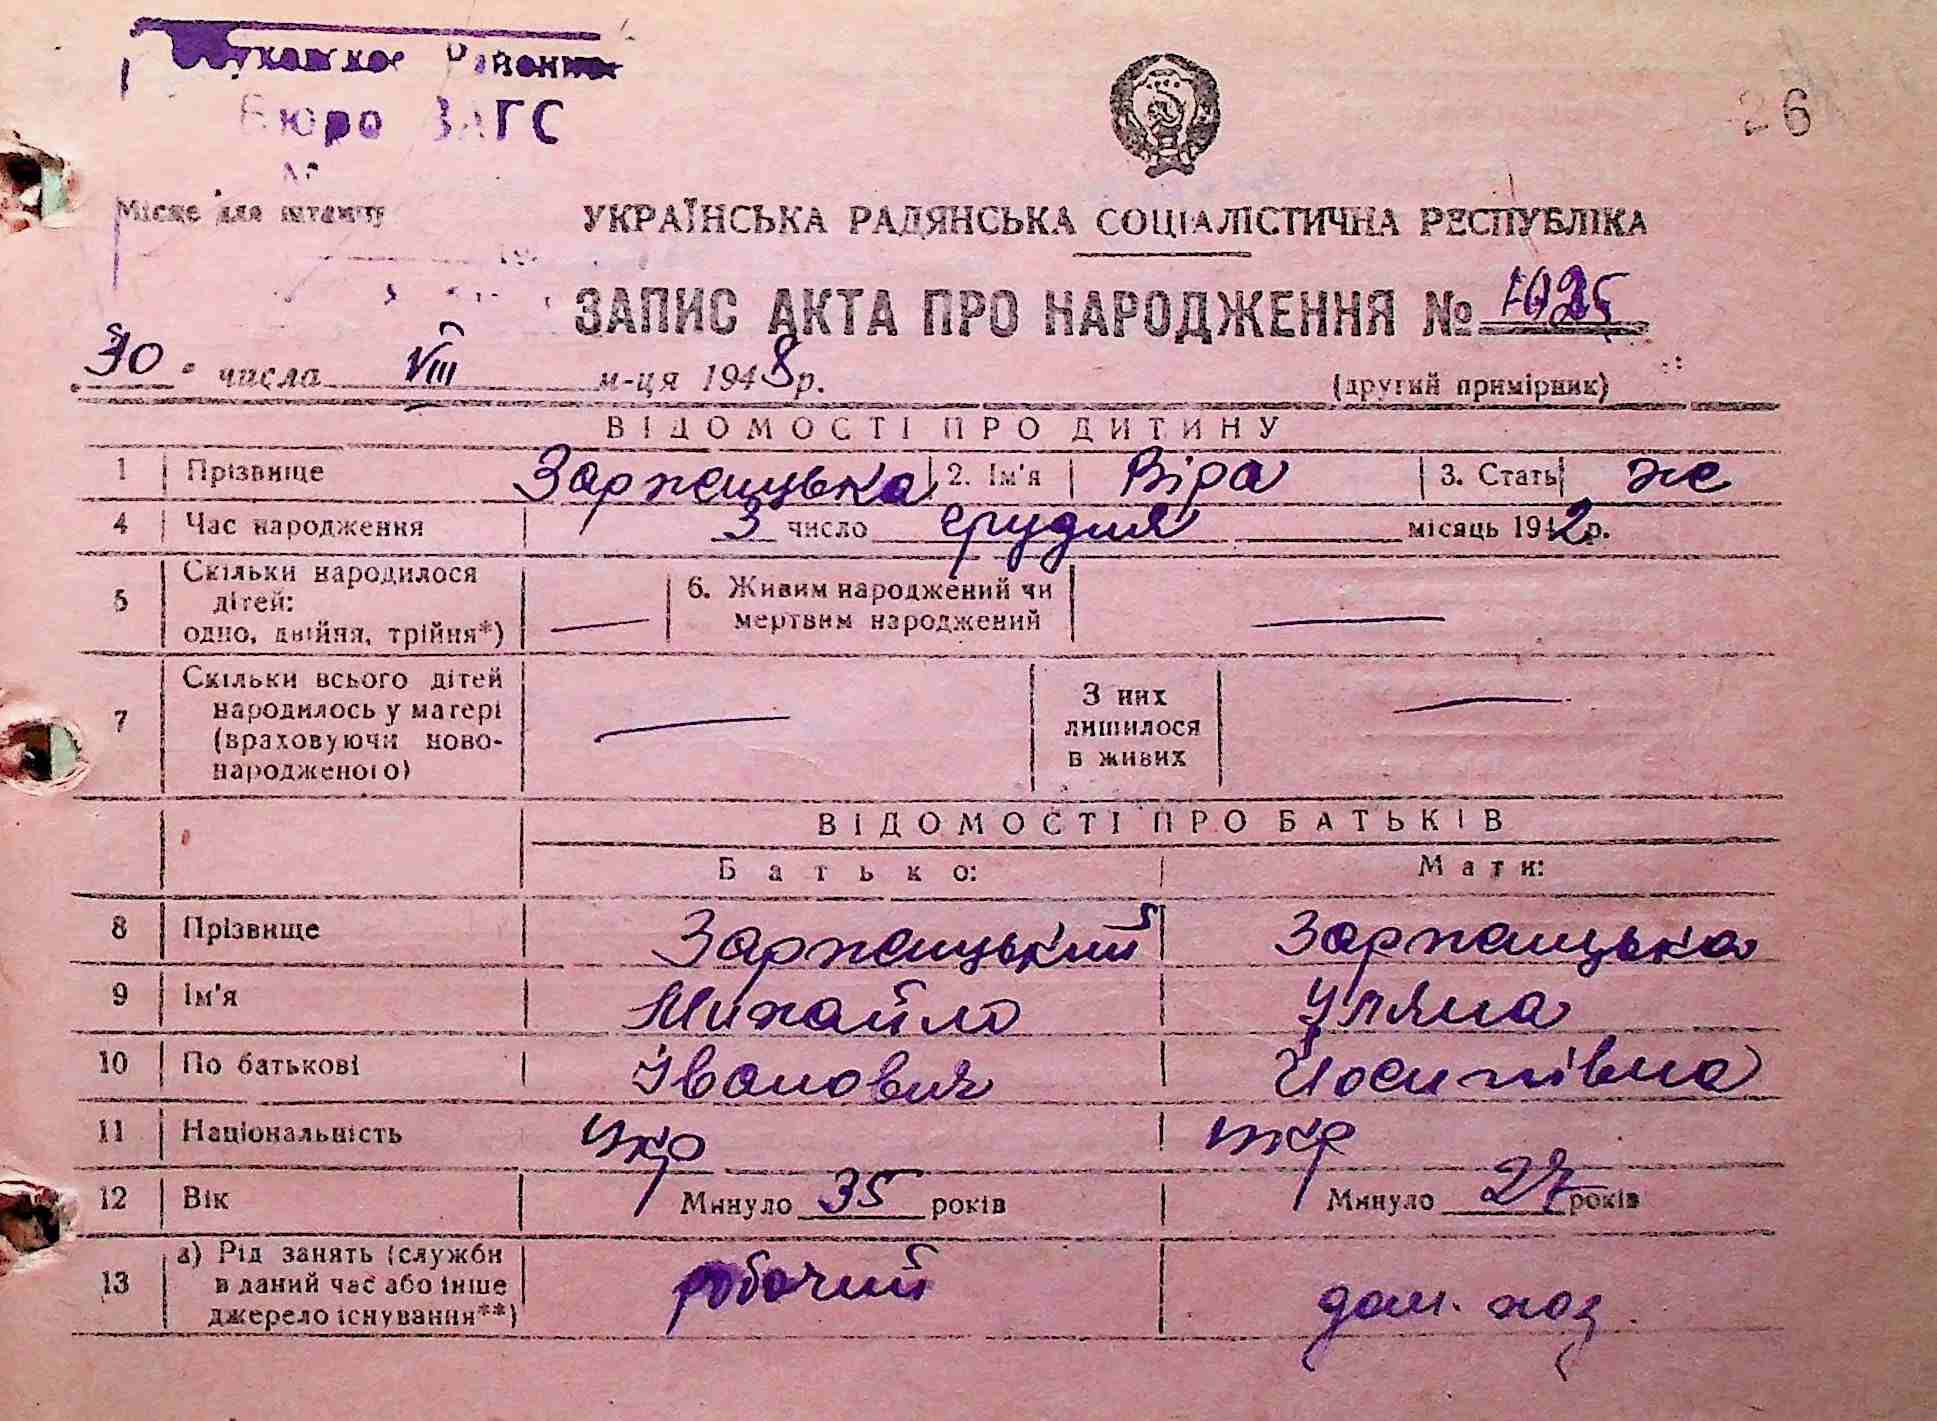 Бюро ЗАГС
26
Місце для штампу
УКРАЇНСЬКА РАДЯНСЬКА СОЦІАЛІСТИЧНА РЕСПУБЛІКА
ЗАПИС АКТА ПРО НАРОДЖЕННЯ № 1025
30 числа VIII м-ця 1948 р.
(другий примірник)
ВІДОМОСТІ ПРО ДИТИНУ
1 Прізвище Заржицька 2. Ім'я Віра 3. Стать же
4 Час народження 3 число грудня місяць 1942 р.
5 Скільки народилося дітей: одно, двійня, трійня*) — 6. Живим народжений чи мертвим народжений —
7 Скільки всього дітей народилось у матері (враховуючи ново-народженого) — З них лишилося в живих —
ВІДОМОСТІ ПРО БАТЬКІВ
Батько: Мати:
8 Прізвище Заржицький Заржицька
9 Ім'я Михайло Уляна
10 По батькові Іванович Йосипівна
11 Національність укр укр
12 Вік Минуло 35 років Минуло 27 років
13 а) Рід занять (служби в даний час або інше джерело існування**) робочий дом. хоз.